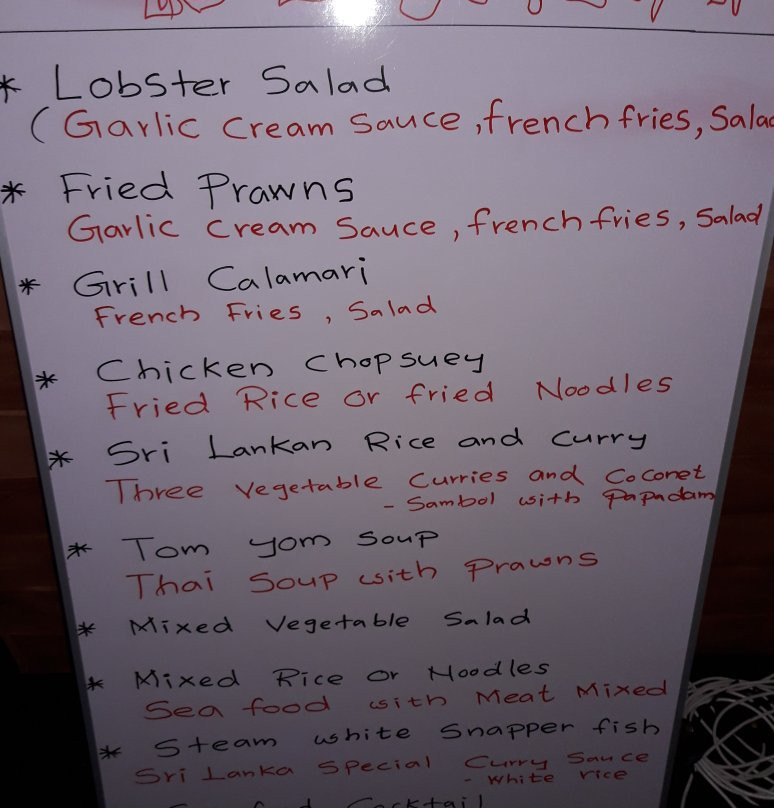 * Lobster Salad
(Garlic Cream Sauce, french fries, Salad
* Fried Prawns
Garlic cream Sauce, french fries, Salad
* Grill Calamari
French Fries, Salad
* Chicken Chopsuey
Fried Rice or fried Noodles
* Sri Lankan Rice and Curry
Three Vegetable Curries and Coconet
- Sambol with Papadam
* Tom yom Soup
Thai Soup with Prawns
* Mixed Vegetable Salad
* Mixed Rice or Noodles
Sea food with Meat Mixed
* Steam white Snapper fish
Sri Lanka Special Curry Sauce
- White rice
Cocktail